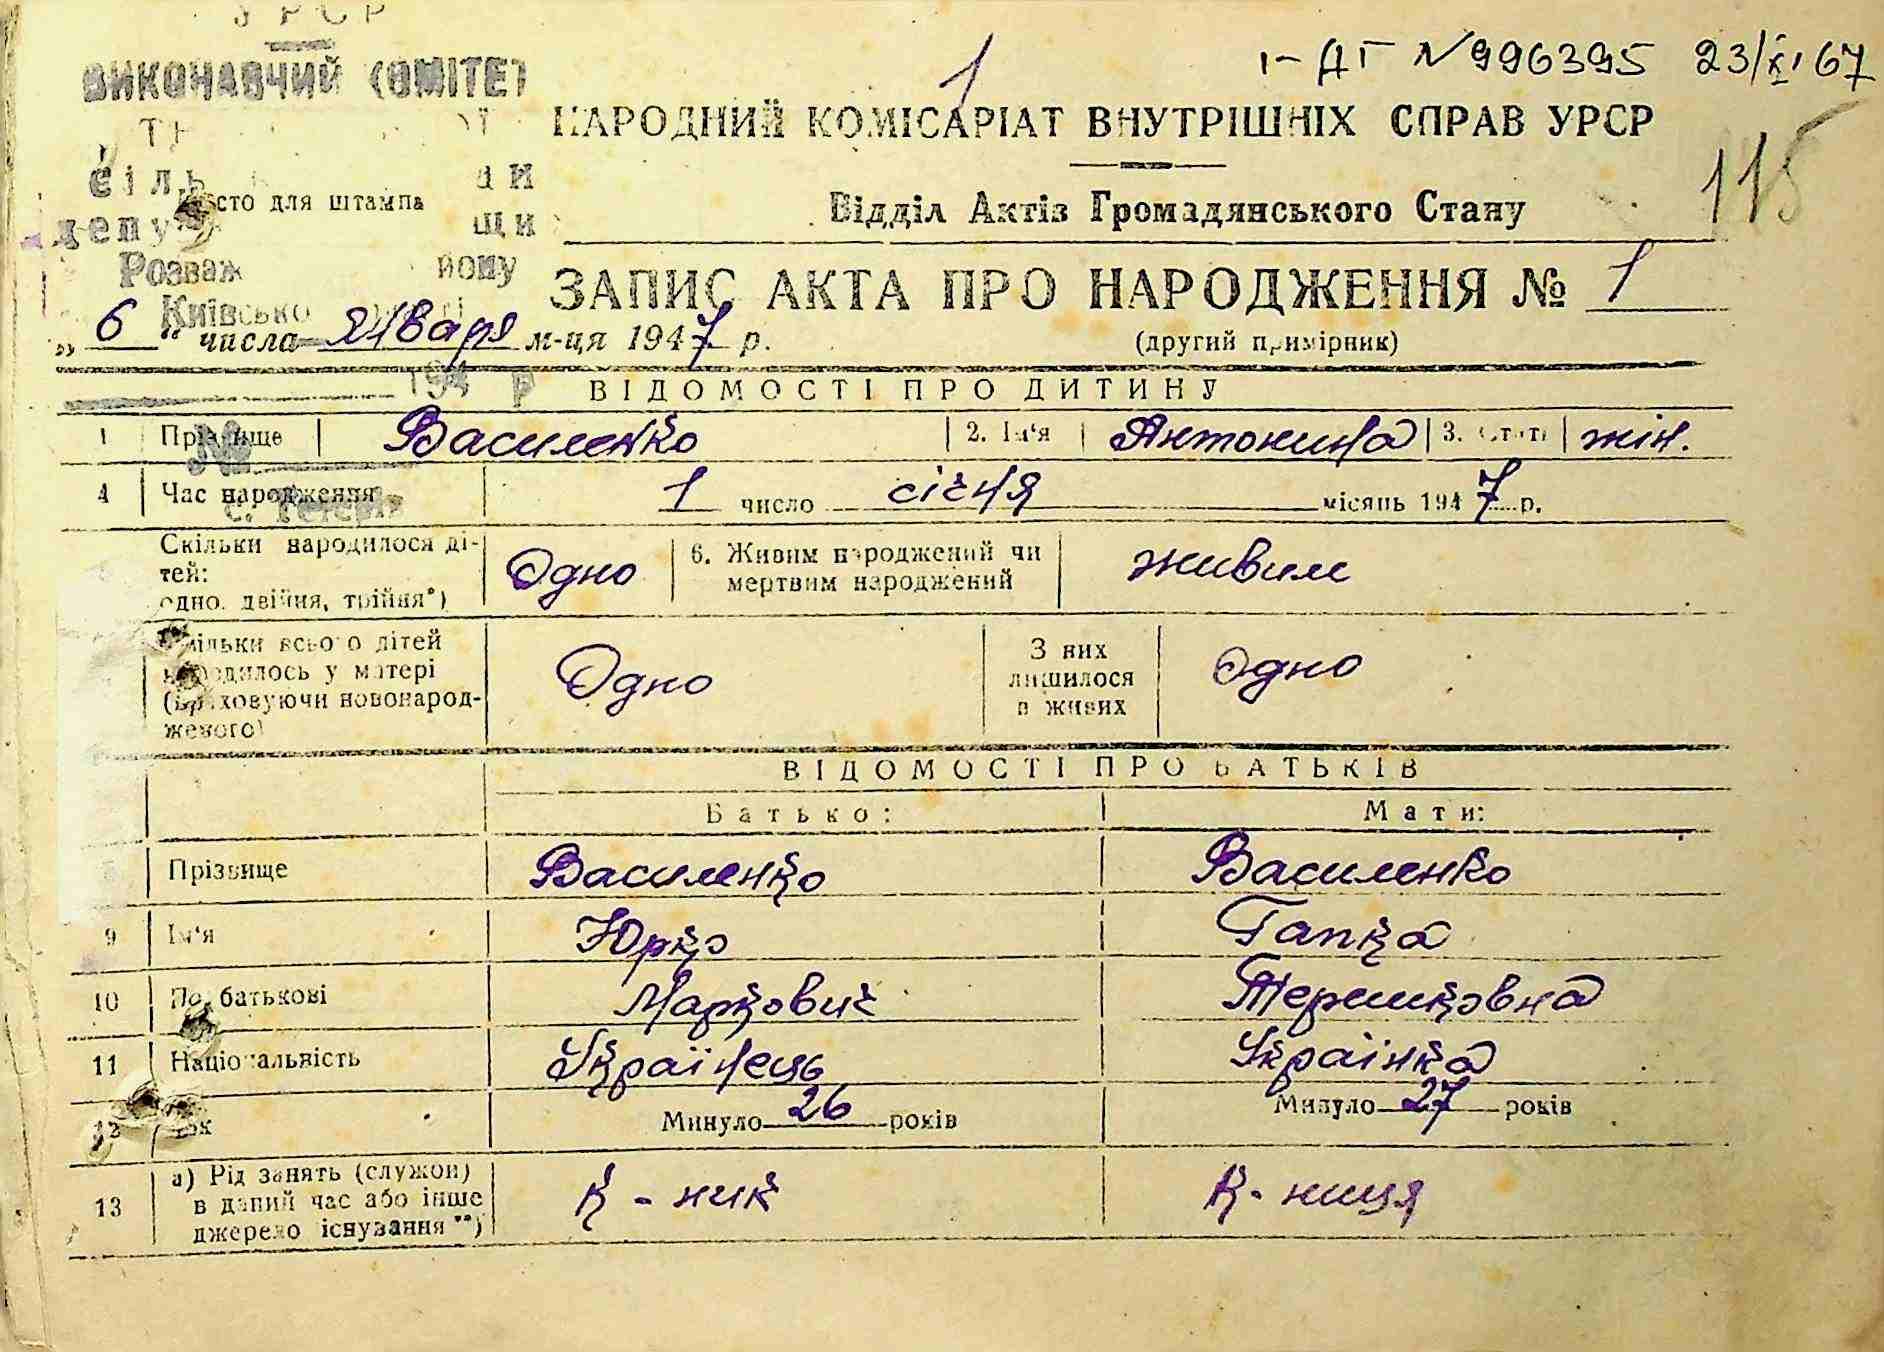 УРСР
ВИКОНАВЧИЙ КОМІТЕТ
1
І-ДГ №996395 23/XI 67
НАРОДНИЙ КОМІСАРІАТ ВНУТРІШНІХ СПРАВ УРСР
115
Місто для штампа
Відділ Актів Громадянського Стану
ЗАПИС АКТА ПРО НАРОДЖЕННЯ № 1
(другий примірник)
„6“ числа Января м-ця 1947 р.
194 р
ВІДОМОСТІ ПРО ДИТИНУ
1 Прізвище Василенко 2. Ім'я Антонина 3. Стать жін.
№
4 Час народження 1 число січня місяць 1947 р.
Скільки народилося ді-
тей:
одно, двійня, трійня*) Одно 6. Живим народжений чи
мертвим народжений живим
Скільки всього дітей
народилось у матері
(враховуючи новонарод-
женого) Одно З них
лишилося
в живих одно
ВІДОМОСТІ ПРО БАТЬКІВ
Батько: Мати:
Прізвище Василенко Василенко
9 Ім'я Юрко Гапка
10 По батькові Маркович Терешковна
11 Національність Українець Українка
12 Вік Минуло 26 років Минуло 27 років
13 а) Рід занять (служби)
в даний час або інше
джерело існування**) К-ник К-ниця